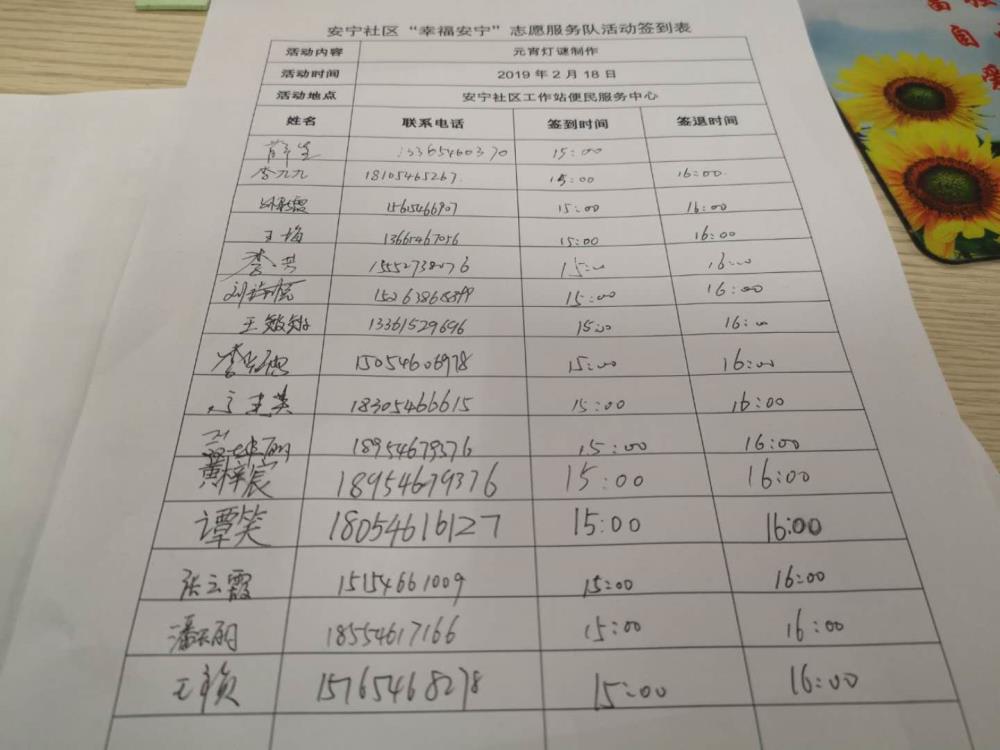 安宁社区“幸福安宁”志愿服务队活动签到表
活动内容 元宵灯谜制作
活动时间 2019 年 2 月 18 日
活动地点 安宁社区工作站便民服务中心
姓名 联系电话 签到时间 签退时间
13365460370 15:00
李九九 18105465267. 15:00 16:00.
15615466907 15:00 16:00
王梅 13665467056 15:00 16:00
李芸 15552738076 15:00 16:00
15:00 16:00
王 13361529696 15:00 16:00
李 15054606978 15:00 16:00
18305466615 15:00 16:00
18954679376 15:00 16:00
黄梓宸 18954679376 15:00 16:00
谭笑 18054616127 15:00 16:00
张云霞 15154661009 15:00 16:00
潘丽 18554617166 15:00 16:00
王颖 15765468278 15:00 16:00